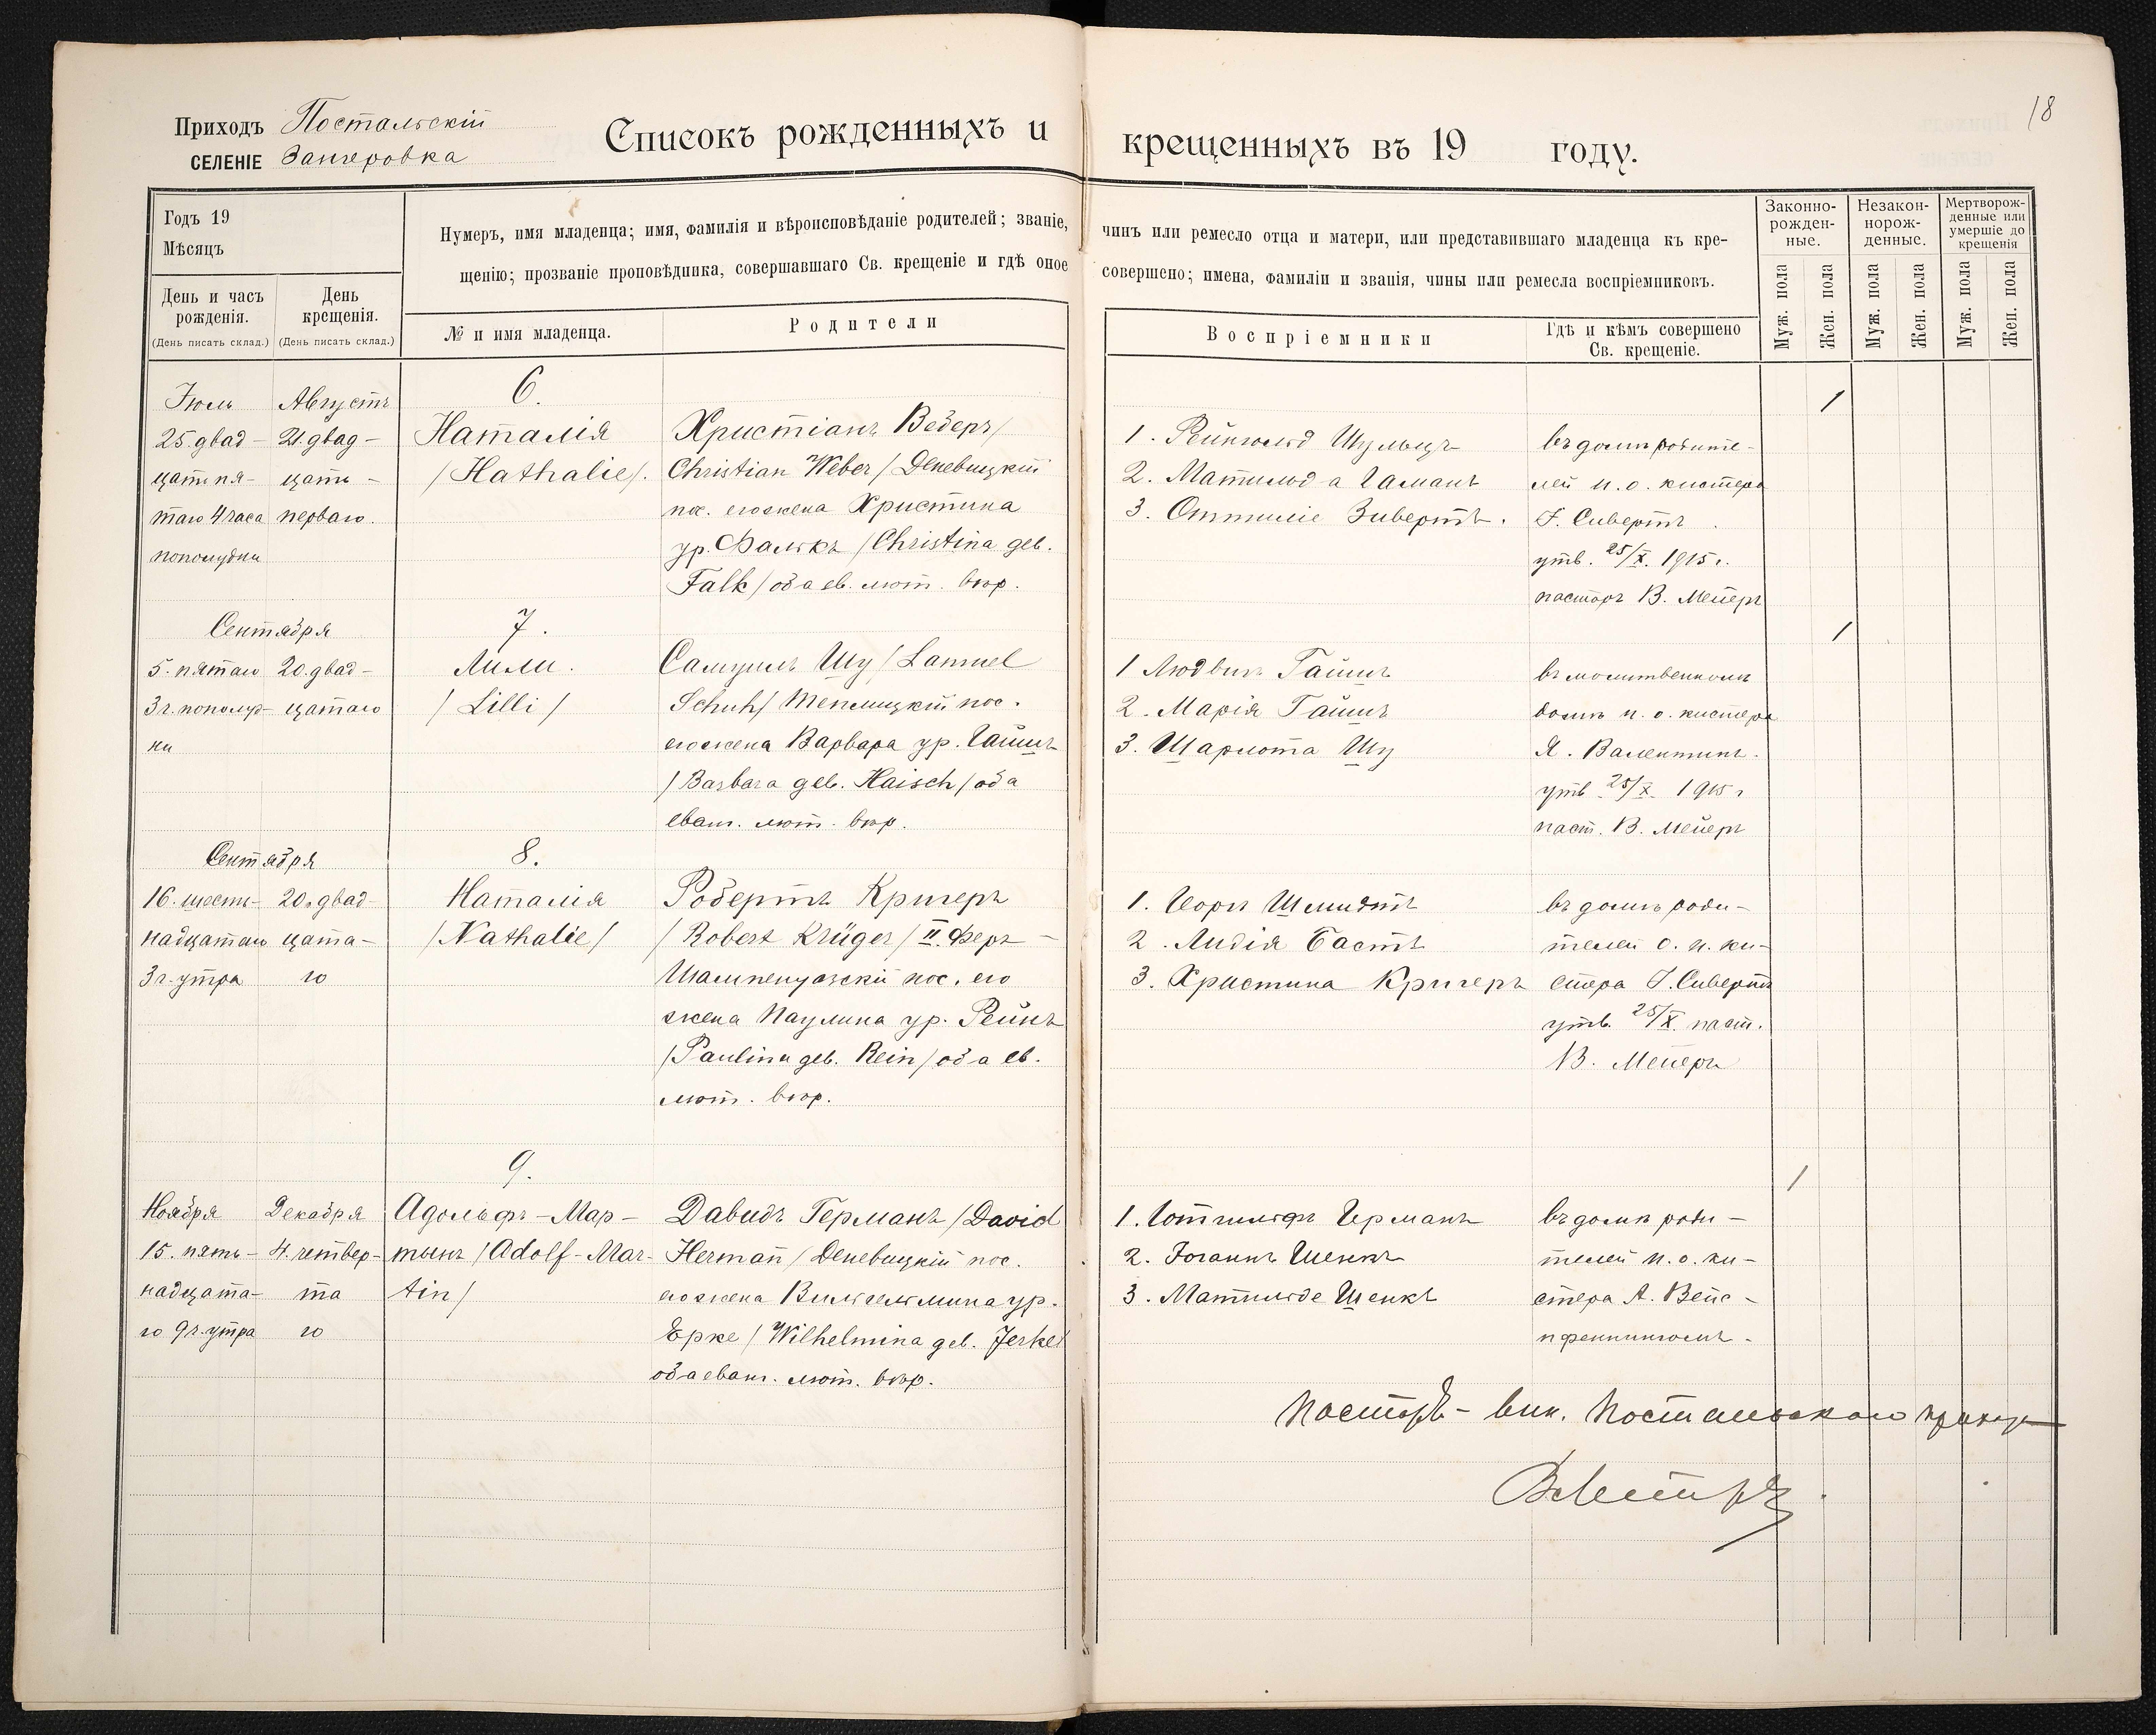 18
Приходъ Постальскій
СЕЛЕНІЕ Зангеровка
Списокъ рожденныхъ и крещенныхъ въ 19 году.
Годъ 19
Мѣсяцъ
День и часъ рожденія.
(День писать склад.)
День крещенія.
(День писать склад.)
Нумеръ, имя младенца; имя, фамилія и вѣроисповѣданіе родителей; званіе, чинъ или ремесло отца и матери, или представившаго младенца къ кре-
щенію; прозваніе проповѣдника, совершавшаго Св. крещеніе и гдѣ оное совершено; имена, фамиліи и званія, чины или ремесла воспріемниковъ.
№ и имя младенца.
Родители
Воспріемники
Гдѣ и кѣмъ совершено
Св. крещеніе.
Законно-
рожден-
ные.
Незакон-
норож-
денные.
Мертворож-
денные или
умершіе до
крещенія
Муж. пола
Жен. пола
Муж. пола
Жен. пола
Муж. пола
Жен. пола
Іюль
25. двад-
цать пя-
таго 4 часа
пополудни
Августъ
21. двад-
цать-
перваго.
6.
Наталія
/Nathalie/.
Христіанъ Веберъ/
Christian Weber/Деневицкій
пос. его жена Христина
ур. Фалькъ/Christina geb.
Falk/оба ев. лют. вѣр.
1. Рейнгольдъ Шульцъ
2. Матильда Гаманъ
3. Оттиліе Зивертъ.
въ домѣ родите-
лей и. о. кистера
Г. Сивертъ
утв. 25/X. 1915 г.
пасторъ В. Мейеръ
1
Сентября
5. пятаго
3 ч. пополуд-
ни
20. двад-
цатаго
7.
Лили.
/Lilli/
Самуилъ Шу/Samuel
Schuh/Теплицкій пос.
его жена Варвара ур. Гайшъ
/Barbara geb. Haisch/оба
еванг. лют. вѣр.
1 Людвигъ Гайшъ
2. Марія Гайшъ
3. Шарлота Шу
въ молитвенномъ
домѣ и. о. кистера
Я. Валентинъ.
утв 25/X. 1915 г
паст. В. Мейеръ
1
Сентября
16. шест-
надцатаго
3 ч. утра
20. двад-
цата-
го
8.
Наталія
/Nathalie/
Робертъ Кригеръ
/Robert Krüger/II. Феръ-
Шампенуазскій пос. его
жена Паулина ур. Рейнъ
/Paulina geb. Rein/оба ев.
лют. вѣр.
1. Георгъ Шмидтъ
2. Лидія Бастъ
3. Христина Кригеръ
въ домѣ роди-
телей и. о. ки-
стера Г. Сивертъ
утв. 25/X. паст.
В. Мейеръ
Ноября
15. пят-
надцата-
го 9 ч. утра
Декабря
4. четвер-
та
го
9.
Адольфъ-Мар-
тынъ/Adolf-Mar-
tin/
Давидъ Германъ/David
Hermañ/Деневицкій пос.
его жена Вильгельмина ур.
Ерке/Wilhelmina geb. Jerke/
оба еванг. лют. вѣр.
1. Готгильфъ Германъ
2. Іоганнъ Шенкъ
3. Матильде Шенкъ
въ домѣ роди-
телей и. о. ки-
стера А. Вейс-
пфеннингомъ.
1
Пасторъ-вик. Постальскаго прихода
В. Мейеръ